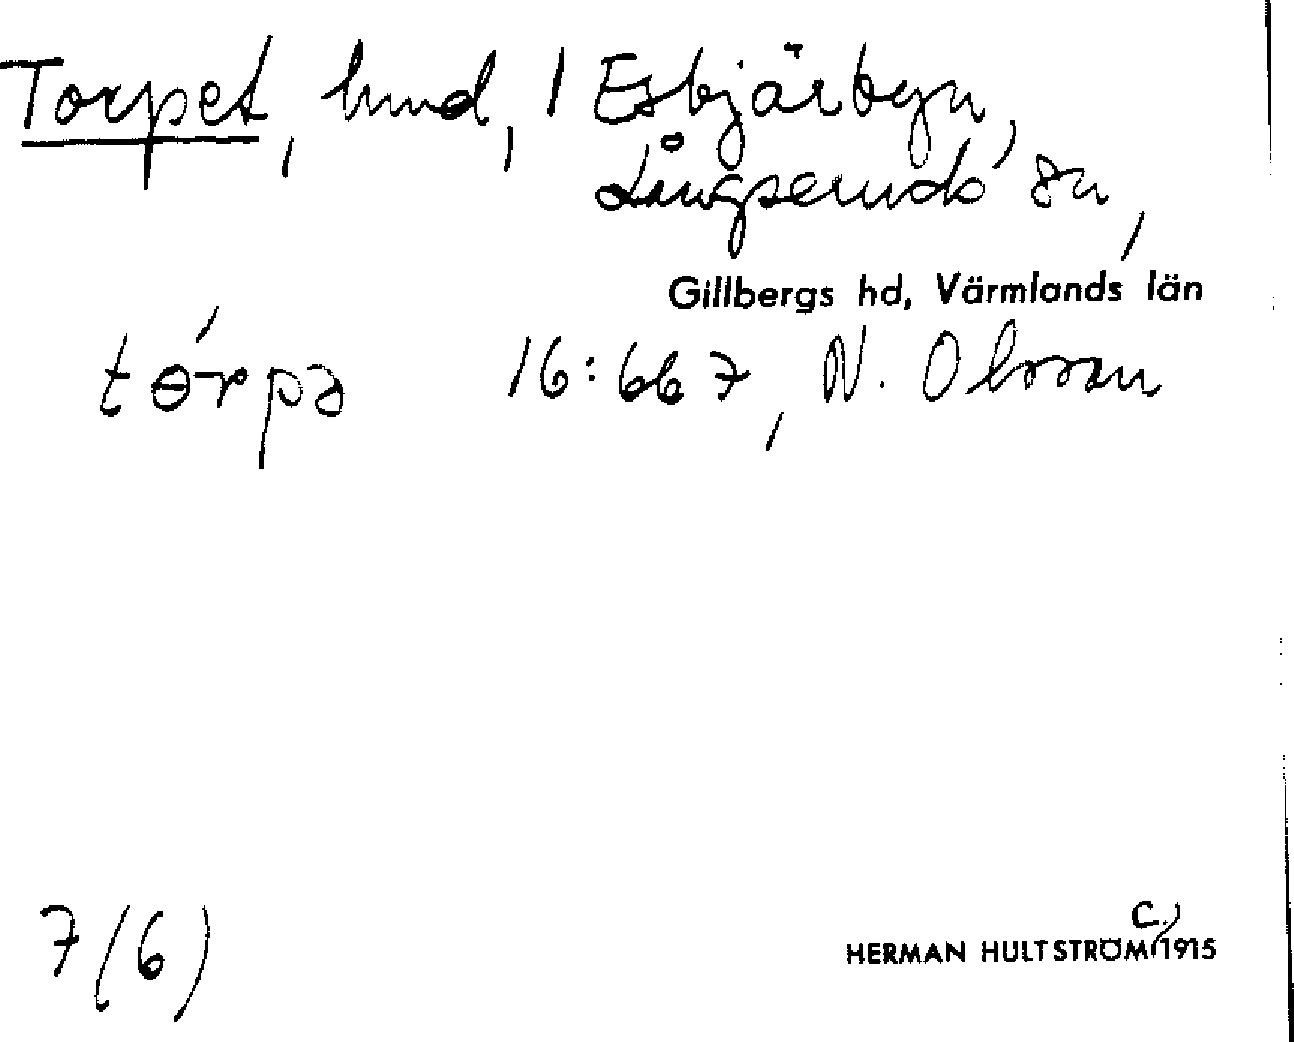 Torpet, hmd, / Esbjärbyn,
Långseruds sn,
Gillbergs hd, Värmlands län
tɵ́rpə 16:667, N. Olsson
7(6)
c.
HERMAN HULTSTRÖM 1915